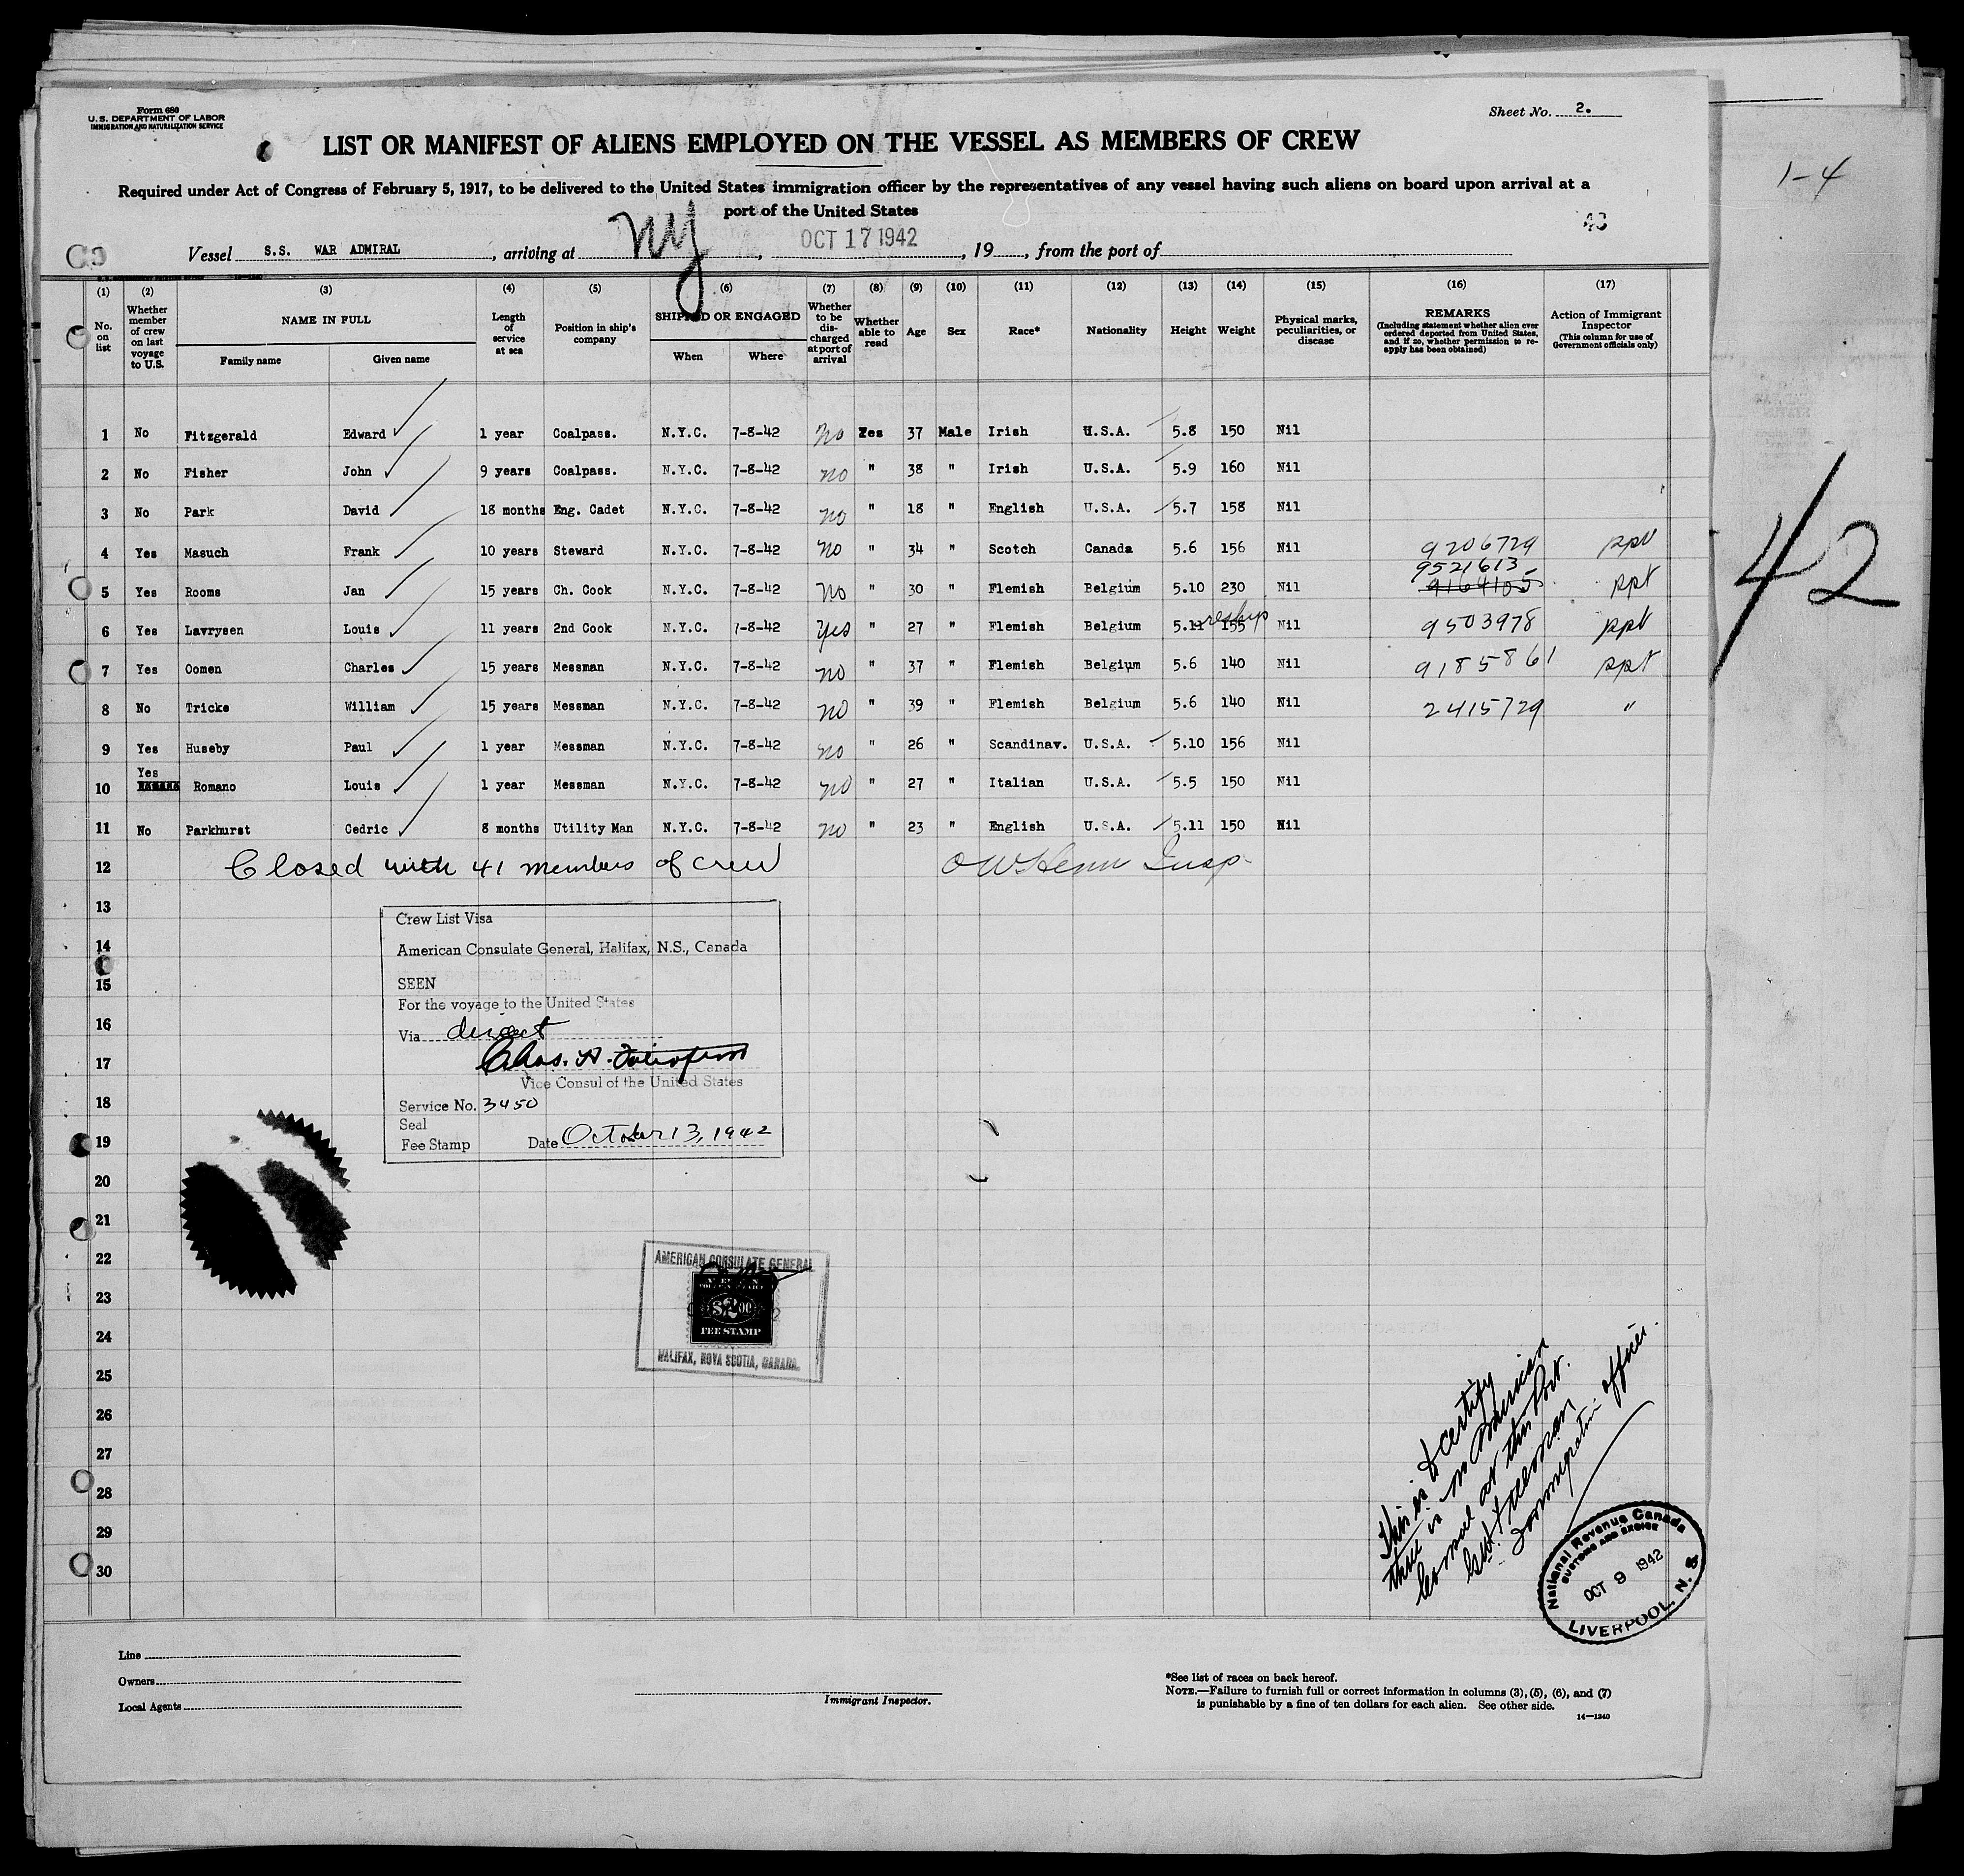 Form 680
U. S. DEPARTMENT OF LABOR
IMMIGRATION AND NATURALIZATION SERVICE
Sheet No. 2.
LIST OR MANIFEST OF ALIENS EMPLOYED ON THE VESSEL AS MEMBERS OF CREW
Required under Act of Congress of February 5, 1917, to be delivered to the United States immigration officer by the representatives of any vessel having such aliens on board upon arrival at a
port of the United States
1-4
43
Vessel S.S. WAR ADMIRAL, arriving at NY, OCT 17 1942, 19, from the port of
(1) (2) (3) (4) (5) (6) (7) (8) (9) (10) (11) (12) (13) (14) (15) (16) (17)
No. on list
Whether member of crew on last voyage to U.S.
NAME IN FULL
Family name Given name
Length of service at sea
Position in ship's company
SHIPPED OR ENGAGED
When Where
Whether to be discharged at port of arrival
Whether able to read
Age
Sex
Race*
Nationality
Height
Weight
Physical marks, peculiarities, or disease
REMARKS
(Including statement whether alien ever ordered deported from United States, and if so, whether permission to re-apply has been obtained)
Action of Immigrant Inspector
(This column for use of Government officials only)
1 No Fitzgerald Edward 1 year Coalpass. N.Y.C. 7-8-42 no Yes 37 Male Irish U.S.A. 5.8 150 Nil
2 No Fisher John 9 years Coalpass. N.Y.C. 7-8-42 no " 38 " Irish U.S.A. 5.9 160 Nil
3 No Park David 18 months Eng. Cadet N.Y.C. 7-8-42 no " 18 " English U.S.A. 5.7 158 Nil
4 Yes Masuch Frank 10 years Steward N.Y.C. 7-8-42 no " 34 " Scotch Canada 5.6 156 Nil 9206729 ppt
9521613
5 Yes Rooms Jan 15 years Ch. Cook N.Y.C. 7-8-42 no " 30 " Flemish Belgium 5.10 230 Nil 9164105 ppt
reship
6 Yes Lavrysen Louis 11 years 2nd Cook N.Y.C. 7-8-42 yes " 27 " Flemish Belgium 5.11 155 Nil 9503978 ppt
7 Yes Oomen Charles 15 years Messman N.Y.C. 7-8-42 no " 37 " Flemish Belgium 5.6 140 Nil 9185861 ppt
8 No Tricke William 15 years Messman N.Y.C. 7-8-42 no " 39 " Flemish Belgium 5.6 140 Nil 2415729 "
9 Yes Huseby Paul 1 year Messman N.Y.C. 7-8-42 no " 26 " Scandinav. U.S.A. 5.10 156 Nil
Yes
10 Romano Louis 1 year Messman N.Y.C. 7-8-42 no " 27 " Italian U.S.A. 5.5 150 Nil
11 No Parkhurst Cedric 8 months Utility Man N.Y.C. 7-8-42 no " 23 " English U.S.A. 5.11 150 Nil
42
12 Closed with 41 members of crew Insp.
13
Crew List Visa
14
American Consulate General, Halifax, N.S., Canada
15
SEEN
For the voyage to the United States
16
Via direct
17
Chas. A.
Vice Consul of the United States
18
Service No. 3450
Seal
19
Fee Stamp Date October 13, 1942
20
21
22
AMERICAN CONSULATE GENERAL
23
$2.00
FEE STAMP
24
HALIFAX, NOVA SCOTIA, CANADA.
25
26
27
28
29
30
This is to certify
there is no American
Consul at this Port.
Immigration officer.
National Revenue Canada
CUSTOMS AND EXCISE
OCT 9 1942
LIVERPOOL, N. S.
Line
Owners
Local Agents
Immigrant Inspector.
*See list of races on back hereof.
NOTE.—Failure to furnish full or correct information in columns (3), (5), (6), and (7)
is punishable by a fine of ten dollars for each alien. See other side.
14—1240